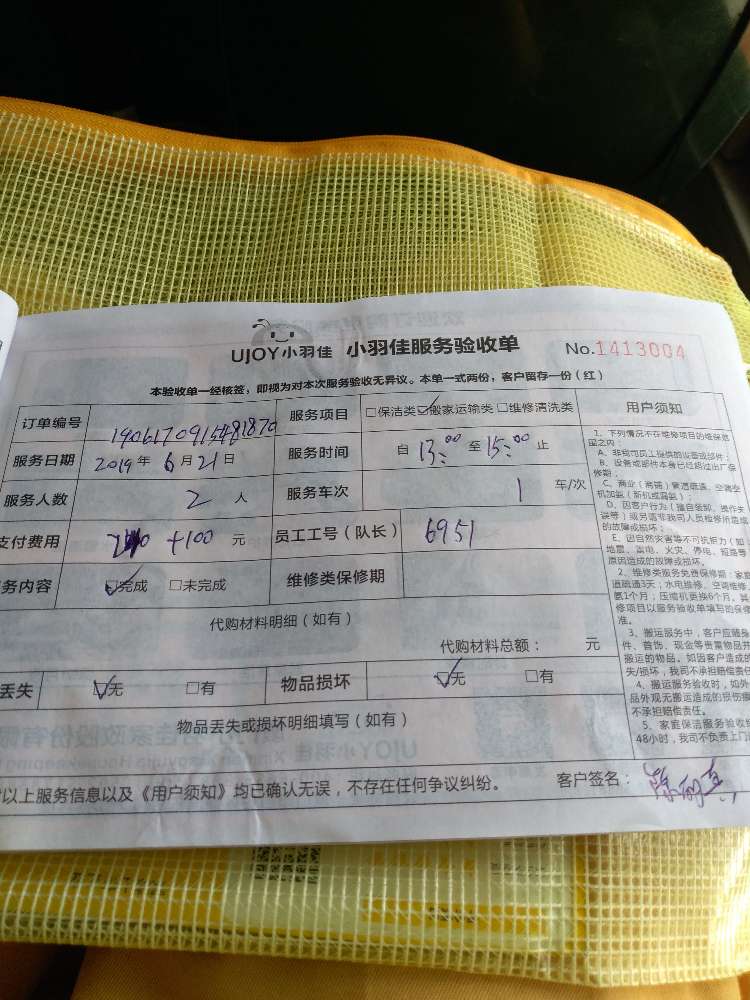 UJOY小羽佳 小羽佳服务验收单 No.1413004
本验收单一经核签，即视为对本次服务验收无异议。本单一式两份，客户留存一份（红）
订单编号 1906170915481870 服务项目 □保洁类☑搬家运输类□维修清洗类 用户须知
服务日期 2019年6月21日 服务时间 自 13:00 至 15:00 止
服务人数 2 人 服务车次 1 车/次
支付费用 +100 元 员工工号（队长） 6951
务内容 ☑完成 □未完成 维修类保修期
代购材料明细（如有）
代购材料总额： 元
丢失 ☑无 □有 物品损坏 ☑无 □有
物品丢失或损坏明细填写（如有）
以上服务信息以及《用户须知》均已确认无误，不存在任何争议纠纷。 客户签名：
1、下列情况不在维修项目的维保范
围之内：
A、非我司员工提供的议器或部件；
B、设备或部件本身已经超过出厂保
修期；
C、商业（商铺）管道疏通、空调空
机加氨（新机或漏氨）；
D、因客户行为（擅自装卸、操作失
误等）或另请非我司人员检修所造成
的故障或损坏；
E、因自然灾害等不可抗拒力（如
地震、雷电、火灾、停电、短路等
原因造成的故障或损坏。
2、维修类服务免费保修期：家庭
道疏通3天；水电维修、空调维修、
氨1个月；压缩机更换6个月。其
修项目以服务验收单填写的保修
准。
3、搬运服务中，客户应随身
件、首饰、现金等贵重物品并
搬运的物品。如因客户造成的
失/损坏，我司不承担赔偿责任
4、搬运服务验收时，如外
品外观无搬运造成的损伤痕
不承担赔偿责任。
5、家庭保洁服务验收
48小时，我司不负责上门